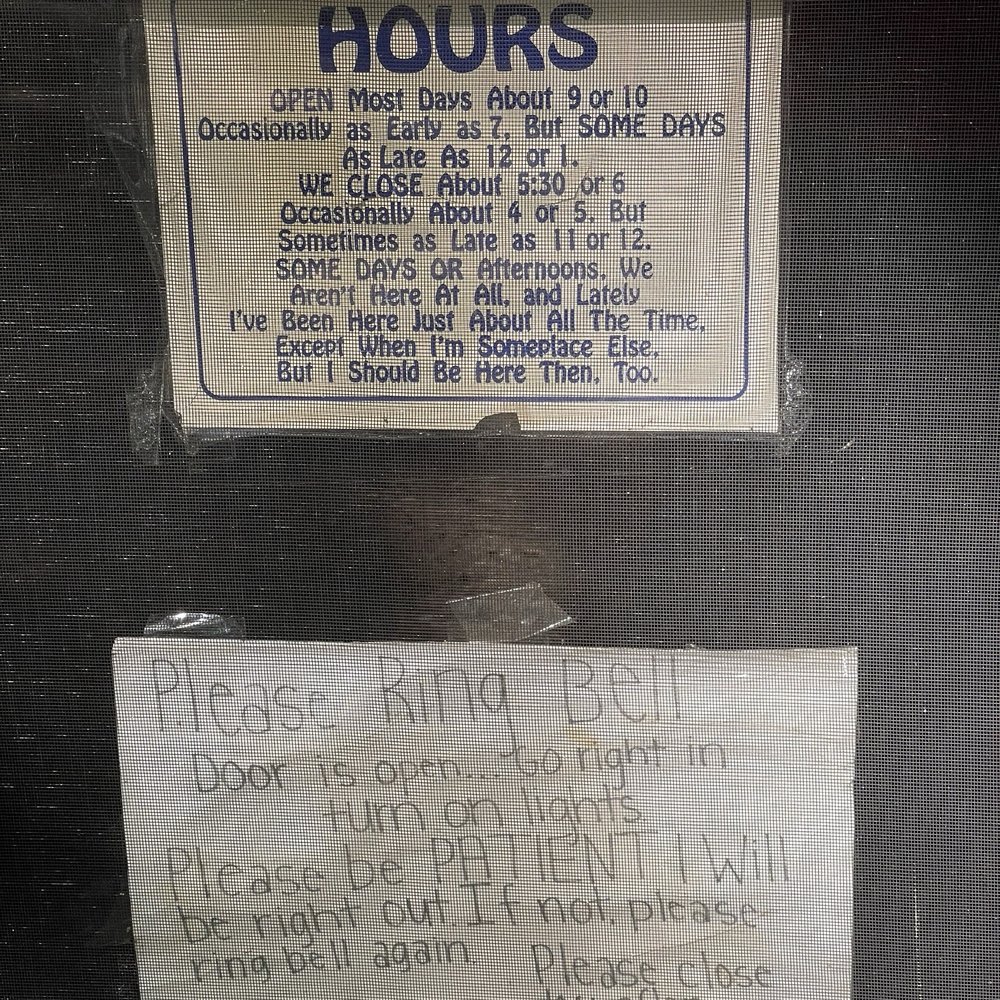 HOURS
OPEN Most Days About 9 or 10
Occasionally as Early as 7, But SOME DAYS
As Late As 12 or 1.
WE CLOSE About 5:30 or 6
Occasionally About 4 or 5, But
Sometimes as Late as 11 or 12.
SOME DAYS OR Afternoons, We
Aren't Here At All, and Lately
I've Been Here Just About All The Time,
Except When I'm Someplace Else,
But I Should Be Here Then, Too.
Please Ring Bell
Door is open... Go right in
turn on lights
Please be PATIENT I Will
be right out. If not, please
ring bell again.
Please close